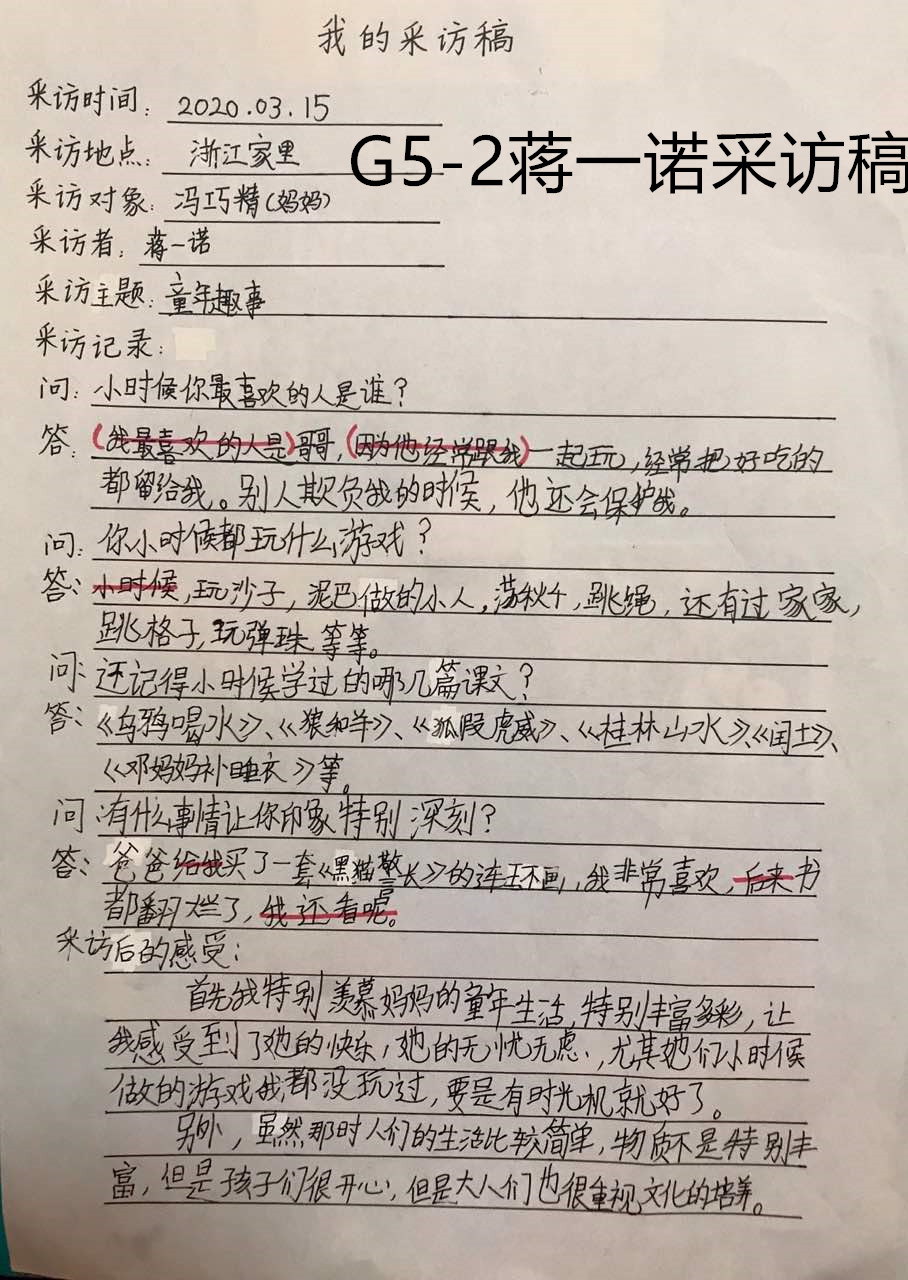 我的采访稿
采访时间：2020.03.15
采访地点：浙江家里
G5-2蒋一诺采访稿
采访对象：冯巧精（妈妈）
采访者：蒋一诺
采访主题：童年趣事
采访记录：
问：小时候你最喜欢的人是谁？
答：（我最喜欢的人是）哥哥，（因为他经常跟我）一起玩，经常把好吃的
都留给我。别人欺负我的时候，他还会保护我。
问：你小时候都玩什么游戏？
答：小时候，玩沙子，泥巴做的小人，荡秋千，跳绳，还有过家家，
跳格子，玩弹珠等等。
问：还记得小时候学过的哪几篇课文？
答：《乌鸦喝水》、《狼和羊》、《狐假虎威》、《桂林山水》、《闰土》、
《邓妈妈补睡衣》等。
问：有什么事情让你印象特别深刻？
答：爸爸给我买了一套《黑猫警长》的连环画，我非常喜欢，后来书
都翻烂了，我还看呢。
采访后的感受：
首先我特别羡慕妈妈的童年生活，特别丰富多彩，让
我感受到了她的快乐，她的无忧无虑，尤其她们小时候
做的游戏我都没玩过，要是有时光机就好了。
另外，虽然那时人们的生活比较简单，物质不是特别丰
富，但是孩子们很开心，但是大人们也很重视文化的培养。